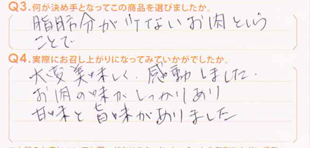 Q3.何が決め手となってこの商品を選びましたか。
脂肪分が少ないお肉という
ことで
Q4.実際にお召し上がりになってみていかがでしたか。
大変美味しく、感動しました。
お肉の味がしっかりあり
甘味と旨味がありました